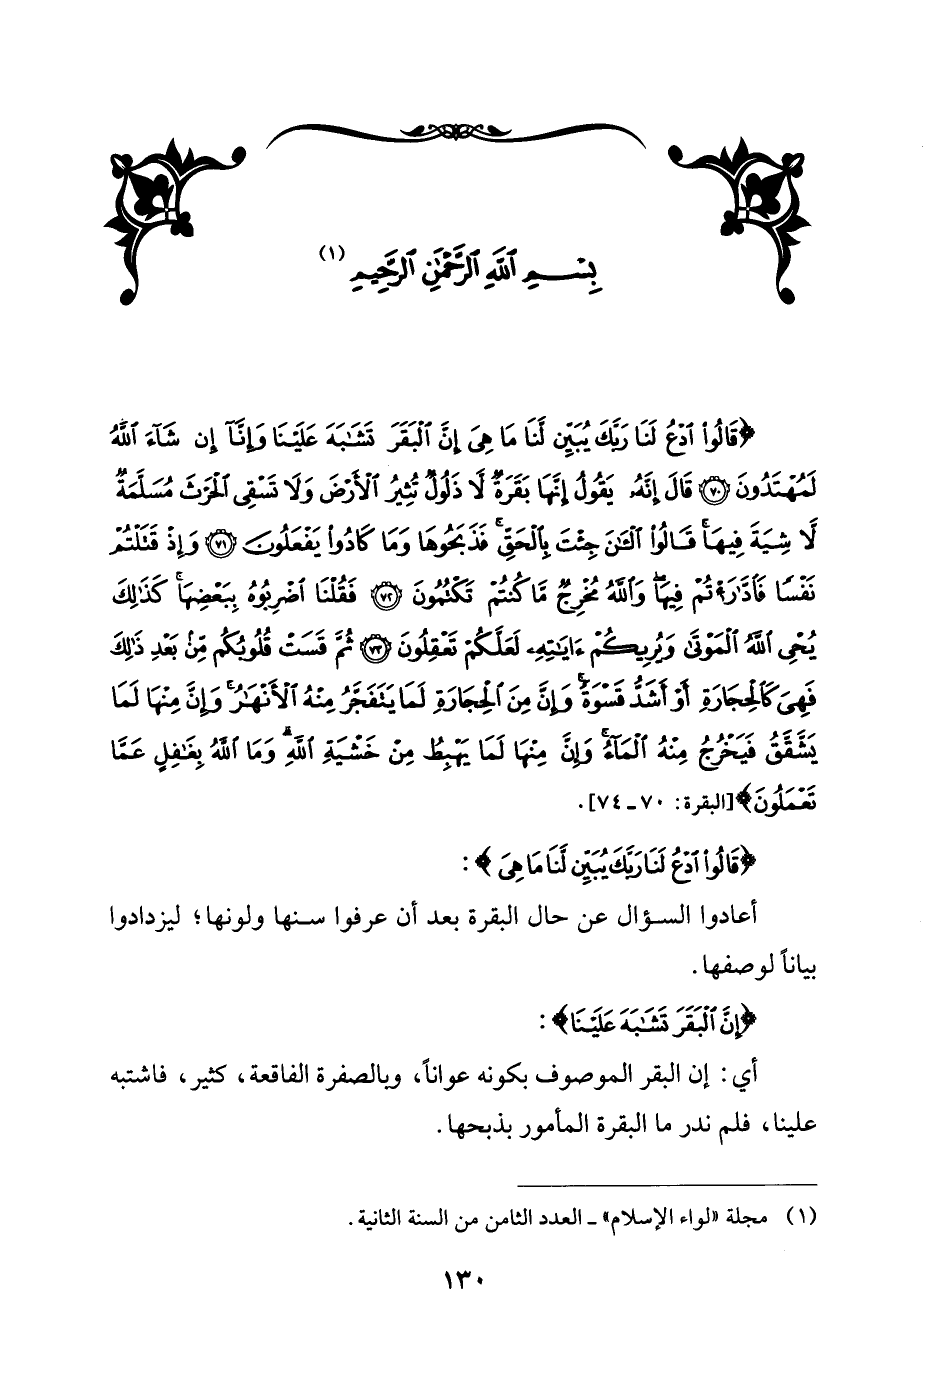 بِسْمِ ٱللَّهِ ٱلرَّحْمَٰنِ ٱلرَّحِيمِ (١)
﴿قَالُوا۟ ٱدْعُ لَنَا رَبَّكَ يُبَيِّن لَّنَا مَا هِىَ إِنَّ ٱلْبَقَرَ تَشَٰبَهَ عَلَيْنَا وَإِنَّآ إِن شَآءَ ٱللَّهُ
لَمُهْتَدُونَ ﴿٧٠﴾ قَالَ إِنَّهُۥ يَقُولُ إِنَّهَا بَقَرَةٌ لَّا ذَلُولٌ تُثِيرُ ٱلْأَرْضَ وَلَا تَسْقِى ٱلْحَرْثَ مُسَلَّمَةٌ
لَّا شِيَةَ فِيهَا ۚ قَالُوا۟ ٱلْـَٰٔنَ جِئْتَ بِٱلْحَقِّ ۚ فَذَبَحُوهَا وَمَا كَادُوا۟ يَفْعَلُونَ ﴿٧١﴾ وَإِذْ قَتَلْتُمْ
نَفْسًا فَٱدَّٰرَْٰٔتُمْ فِيهَا ۖ وَٱللَّهُ مُخْرِجٌ مَّا كُنتُمْ تَكْتُمُونَ ﴿٧٢﴾ فَقُلْنَا ٱضْرِبُوهُ بِبَعْضِهَا ۚ كَذَٰلِكَ
يُحْىِ ٱللَّهُ ٱلْمَوْتَىٰ وَيُرِيكُمْ ءَايَٰتِهِۦ لَعَلَّكُمْ تَعْقِلُونَ ﴿٧٣﴾ ثُمَّ قَسَتْ قُلُوبُكُم مِّنۢ بَعْدِ ذَٰلِكَ
فَهِىَ كَٱلْحِجَارَةِ أَوْ أَشَدُّ قَسْوَةً ۚ وَإِنَّ مِنَ ٱلْحِجَارَةِ لَمَا يَتَفَجَّرُ مِنْهُ ٱلْأَنْهَٰرُ ۚ وَإِنَّ مِنْهَا لَمَا
يَشَّقَّقُ فَيَخْرُجُ مِنْهُ ٱلْمَآءُ ۚ وَإِنَّ مِنْهَا لَمَا يَهْبِطُ مِنْ خَشْيَةِ ٱللَّهِ ۗ وَمَا ٱللَّهُ بِغَٰفِلٍ عَمَّا
تَعْمَلُونَ﴾ [البقرة: ٧٠ ـ ٧٤].
﴿قَالُوا۟ ٱدْعُ لَنَا رَبَّكَ يُبَيِّن لَّنَا مَا هِىَ﴾:
أعادوا السؤال عن حال البقرة بعد أن عرفوا سنها ولونها؛ ليزدادوا
بياناً لوصفها.
﴿إِنَّ ٱلْبَقَرَ تَشَٰبَهَ عَلَيْنَا﴾:
أي: إن البقر الموصوف بكونه عواناً، وبالصفرة الفاقعة، كثير، فاشتبه
علينا، فلم ندر ما البقرة المأمور بذبحها.
(١) مجلة «لواء الإسلام» ـ العدد الثامن من السنة الثانية.
١٣٠